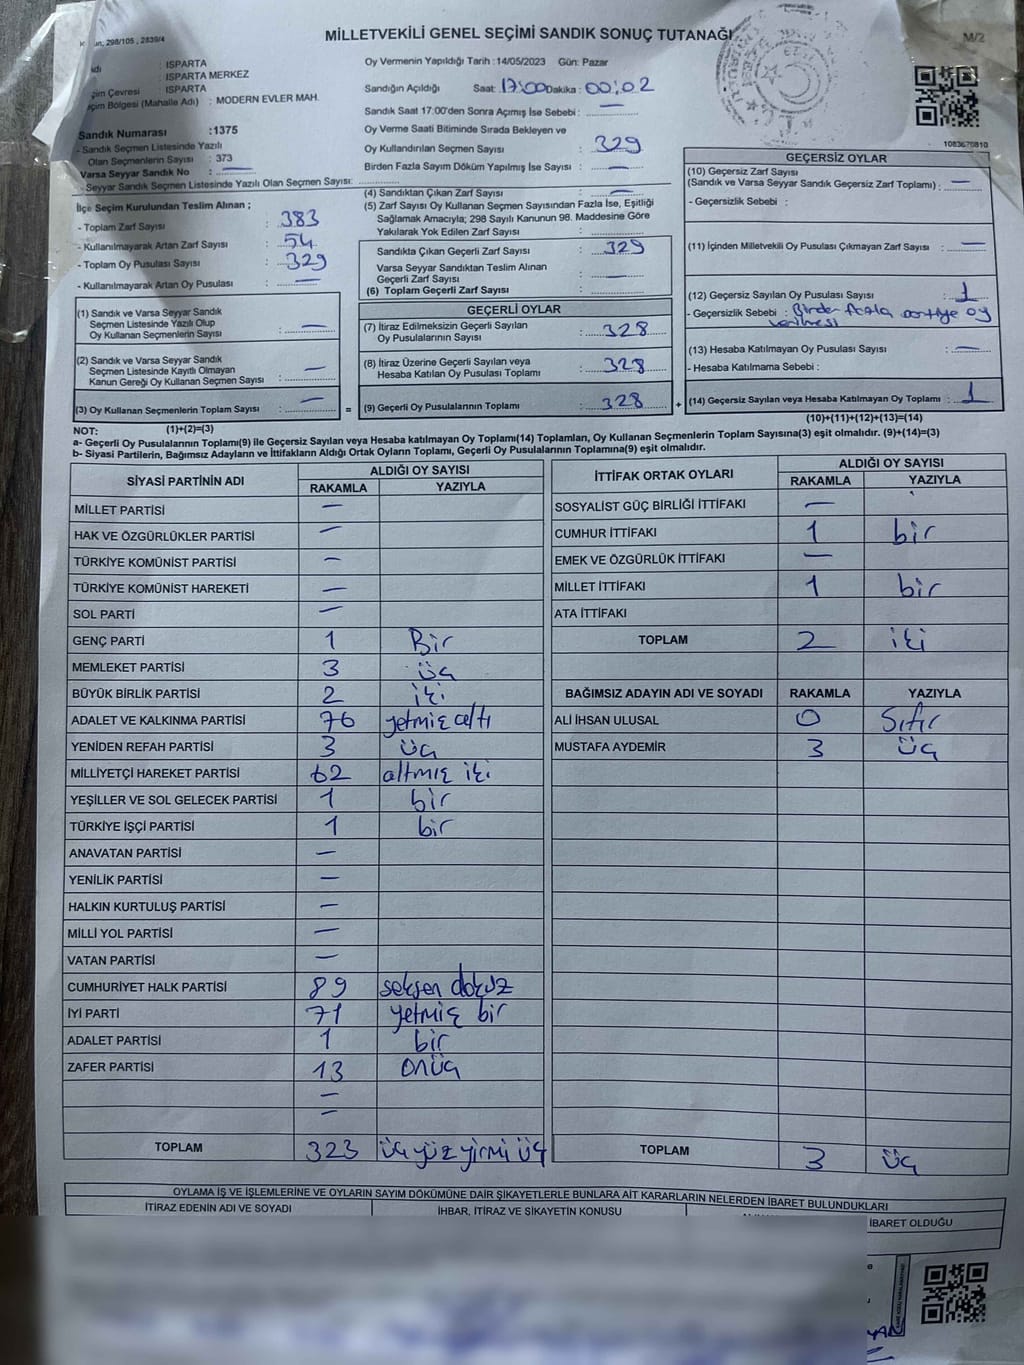 298/105 , 2839/4
MİLLETVEKİLİ GENEL SEÇİMİ SANDIK SONUÇ TUTANAĞI
M/2
: ISPARTA
: ISPARTA MERKEZ
Seçim Çevresi : ISPARTA
Seçim Bölgesi (Mahalle Adı) : MODERN EVLER MAH.
Sandık Numarası :1375
- Sandık Seçmen Listesinde Yazılı
Olan Seçmenlerin Sayısı : 373
Varsa Seyyar Sandık No : —
- Seyyar Sandık Seçmen Listesinde Yazılı Olan Seçmen Sayısı:
İlçe Seçim Kurulundan Teslim Alınan ;
- Toplam Zarf Sayısı : 383
- Kullanılmayarak Artan Zarf Sayısı : 54
- Toplam Oy Pusulası Sayısı : 329
- Kullanılmayarak Artan Oy Pusulası : —
(1) Sandık ve Varsa Seyyar Sandık
Seçmen Listesinde Yazılı Olup
Oy Kullanan Seçmenlerin Sayısı : —
(2) Sandık ve Varsa Seyyar Sandık
Seçmen Listesinde Kayıtlı Olmayan
Kanun Gereği Oy Kullanan Seçmen Sayısı : —
(3) Oy Kullanan Seçmenlerin Toplam Sayısı : —
(1)+(2)=(3)
Oy Vermenin Yapıldığı Tarih : 14/05/2023 Gün: Pazar
Sandığın Açıldığı Saat: 17:00 Dakika : 00:02
Sandık Saat 17.00'den Sonra Açımış İse Sebebi : —
Oy Verme Saati Bitiminde Sırada Bekleyen ve
Oy Kullandırılan Seçmen Sayısı : 329
Birden Fazla Sayım Döküm Yapılmış İse Sayısı : —
(4) Sandıktan Çıkan Zarf Sayısı : —
(5) Zarf Sayısı Oy Kullanan Seçmen Sayısından Fazla İse, Eşitliği
Sağlamak Amacıyla; 298 Sayılı Kanunun 98. Maddesine Göre
Yakılarak Yok Edilen Zarf Sayısı :
Sandıkta Çıkan Geçerli Zarf Sayısı : 329
Varsa Seyyar Sandıktan Teslim Alınan
Geçerli Zarf Sayısı : —
(6) Toplam Geçerli Zarf Sayısı :
GEÇERLİ OYLAR
(7) İtiraz Edilmeksizin Geçerli Sayılan
Oy Pusulalarının Sayısı : 328
(8) İtiraz Üzerine Geçerli Sayılan veya
Hesaba Katılan Oy Pusulası Toplamı : 328
= (9) Geçerli Oy Pusulalarının Toplamı : 328 +
1083676810
GEÇERSİZ OYLAR
(10) Geçersiz Zarf Sayısı
(Sandık ve Varsa Seyyar Sandık Geçersiz Zarf Toplamı) : —
- Geçersizlik Sebebi :
(11) İçinden Milletvekili Oy Pusulası Çıkmayan Zarf Sayısı : —
(12) Geçersiz Sayılan Oy Pusulası Sayısı : 1
- Geçersizlik Sebebi : Birden fazla partiye oy
verilmesi
(13) Hesaba Katılmayan Oy Pusulası Sayısı : —
- Hesaba Katılmama Sebebi :
(14) Geçersiz Sayılan veya Hesaba Katılmayan Oy Toplamı : 1
(10)+(11)+(12)+(13)=(14)
NOT:
a- Geçerli Oy Pusulalarının Toplamı(9) ile Geçersiz Sayılan veya Hesaba katılmayan Oy Toplamı(14) Toplamları, Oy Kullanan Seçmenlerin Toplam Sayısına(3) eşit olmalıdır. (9)+(14)=(3)
b- Siyasi Partilerin, Bağımsız Adayların ve İttifakların Aldığı Ortak Oyların Toplamı, Geçerli Oy Pusulalarının Toplamına(9) eşit olmalıdır.
SİYASİ PARTİNİN ADI ALDIĞI OY SAYISI
RAKAMLA YAZIYLA
MİLLET PARTİSİ —
HAK VE ÖZGÜRLÜKLER PARTİSİ —
TÜRKİYE KOMÜNİST PARTİSİ —
TÜRKİYE KOMÜNİST HAREKETİ —
SOL PARTİ —
GENÇ PARTİ 1 Bir
MEMLEKET PARTİSİ 3 üç
BÜYÜK BİRLİK PARTİSİ 2 iki
ADALET VE KALKINMA PARTİSİ 76 yetmiş altı
YENİDEN REFAH PARTİSİ 3 üç
MİLLİYETÇİ HAREKET PARTİSİ 62 altmış iki
YEŞİLLER VE SOL GELECEK PARTİSİ 1 bir
TÜRKİYE İŞÇİ PARTİSİ 1 bir
ANAVATAN PARTİSİ —
YENİLİK PARTİSİ —
HALKIN KURTULUŞ PARTİSİ —
MİLLİ YOL PARTİSİ —
VATAN PARTİSİ —
CUMHURİYET HALK PARTİSİ 89 seksen dokuz
İYİ PARTİ 71 yetmiş bir
ADALET PARTİSİ 1 bir
ZAFER PARTİSİ 13 onüç
—
—
TOPLAM 323 üç yüz yirmi üç
İTTİFAK ORTAK OYLARI ALDIĞI OY SAYISI
RAKAMLA YAZIYLA
SOSYALİST GÜÇ BİRLİĞİ İTTİFAKI —
CUMHUR İTTİFAKI 1 bir
EMEK VE ÖZGÜRLÜK İTTİFAKI —
MİLLET İTTİFAKI 1 bir
ATA İTTİFAKI
TOPLAM 2 iki
BAĞIMSIZ ADAYIN ADI VE SOYADI RAKAMLA YAZIYLA
ALİ İHSAN ULUSAL 0 Sıfır
MUSTAFA AYDEMİR 3 üç
TOPLAM 3 üç
OYLAMA İŞ VE İŞLEMLERİNE VE OYLARIN SAYIM DÖKÜMÜNE DAİR ŞİKAYETLERLE BUNLARA AİT KARARLARIN NELERDEN İBARET BULUNDUKLARI
İTİRAZ EDENİN ADI VE SOYADI İHBAR, İTİRAZ VE ŞİKAYETİN KONUSU İBARET OLDUĞU